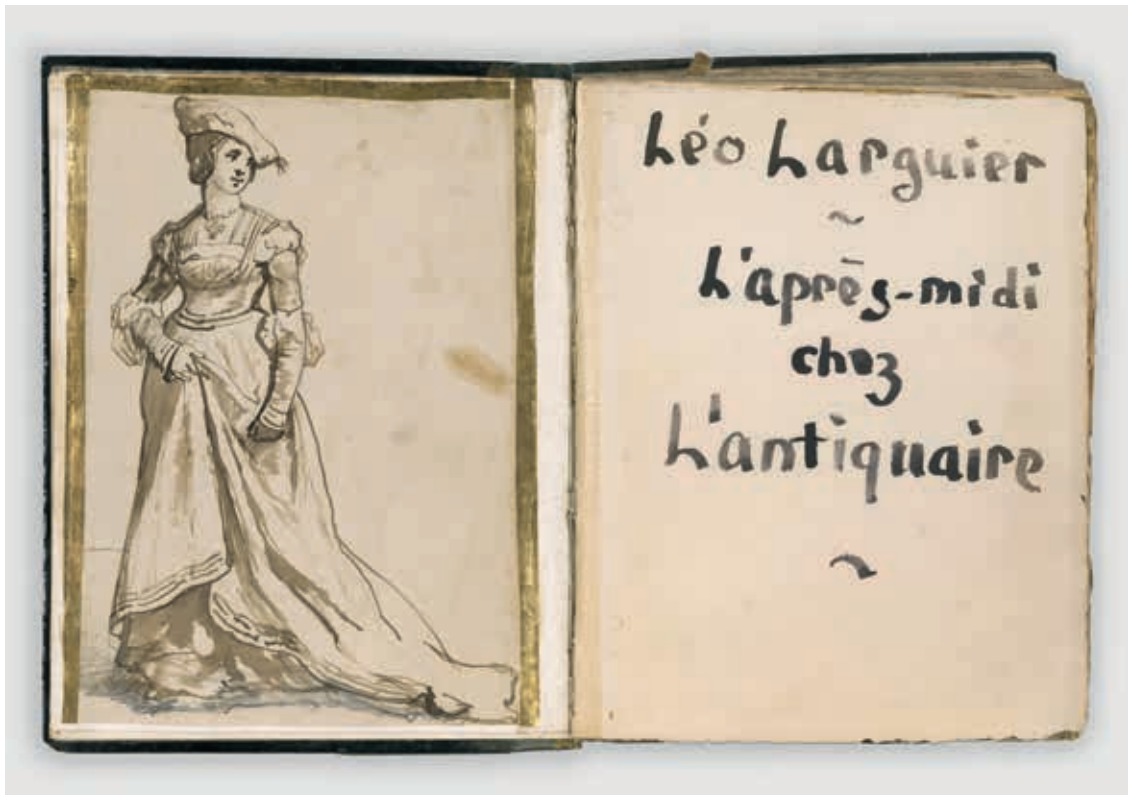 Léo Larguier
~
L'après-midi
chez
L'antiquaire
~